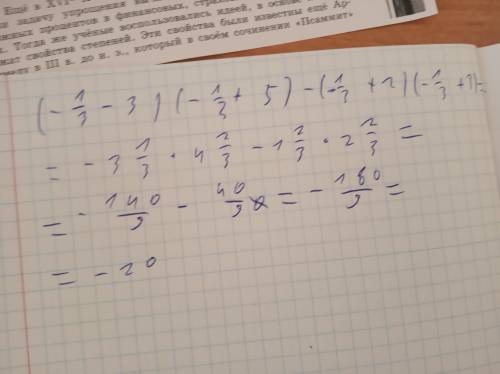 Ещё в XVI
задачу упрощения
процентов в финансовых, страхо
Тогда же учёные воспользовались идеей, в основе
жат свойства степеней. Эти свойства были известны ещё Ар-
в III в. до н. э., который в своём сочинении «Псаммит»
(-1/3 - 3)(-1/3 + 5) - (-1/3 + 2)(-1/3 + 3)=
= - 3 1/3 · 4 2/3 - 1 2/3 · 2 2/3 =
= - 140/9 - 40/9 = - 180/9 =
= - 20